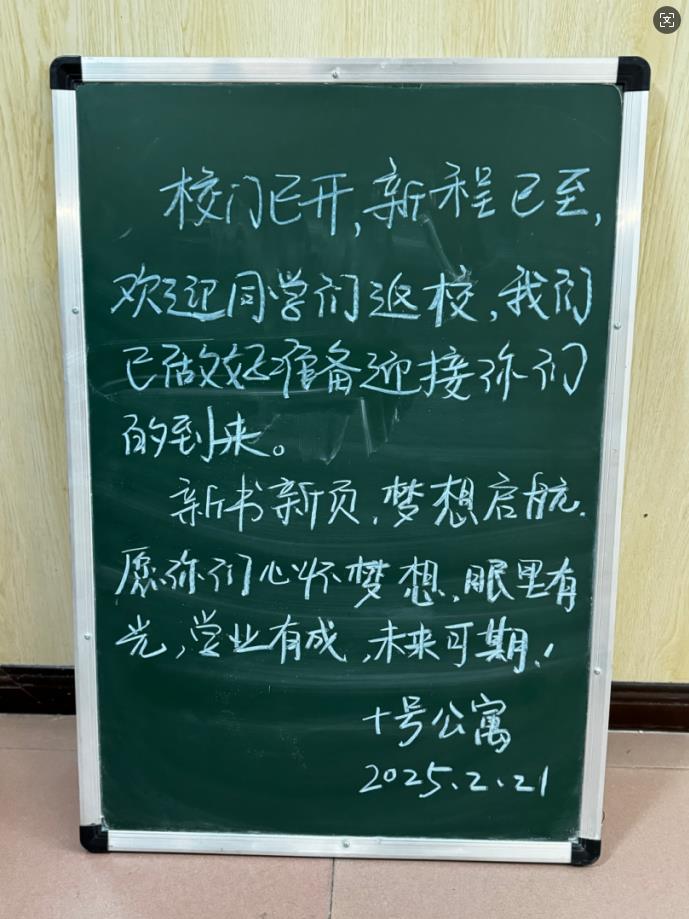 校门已开,新程已至,
欢迎同学们返校,我们
已做好准备迎接你们
的到来。
新书新页,梦想启航.
愿你们心怀梦想,眼里有
光,学业有成,未来可期!
十号公寓
2025.2.21